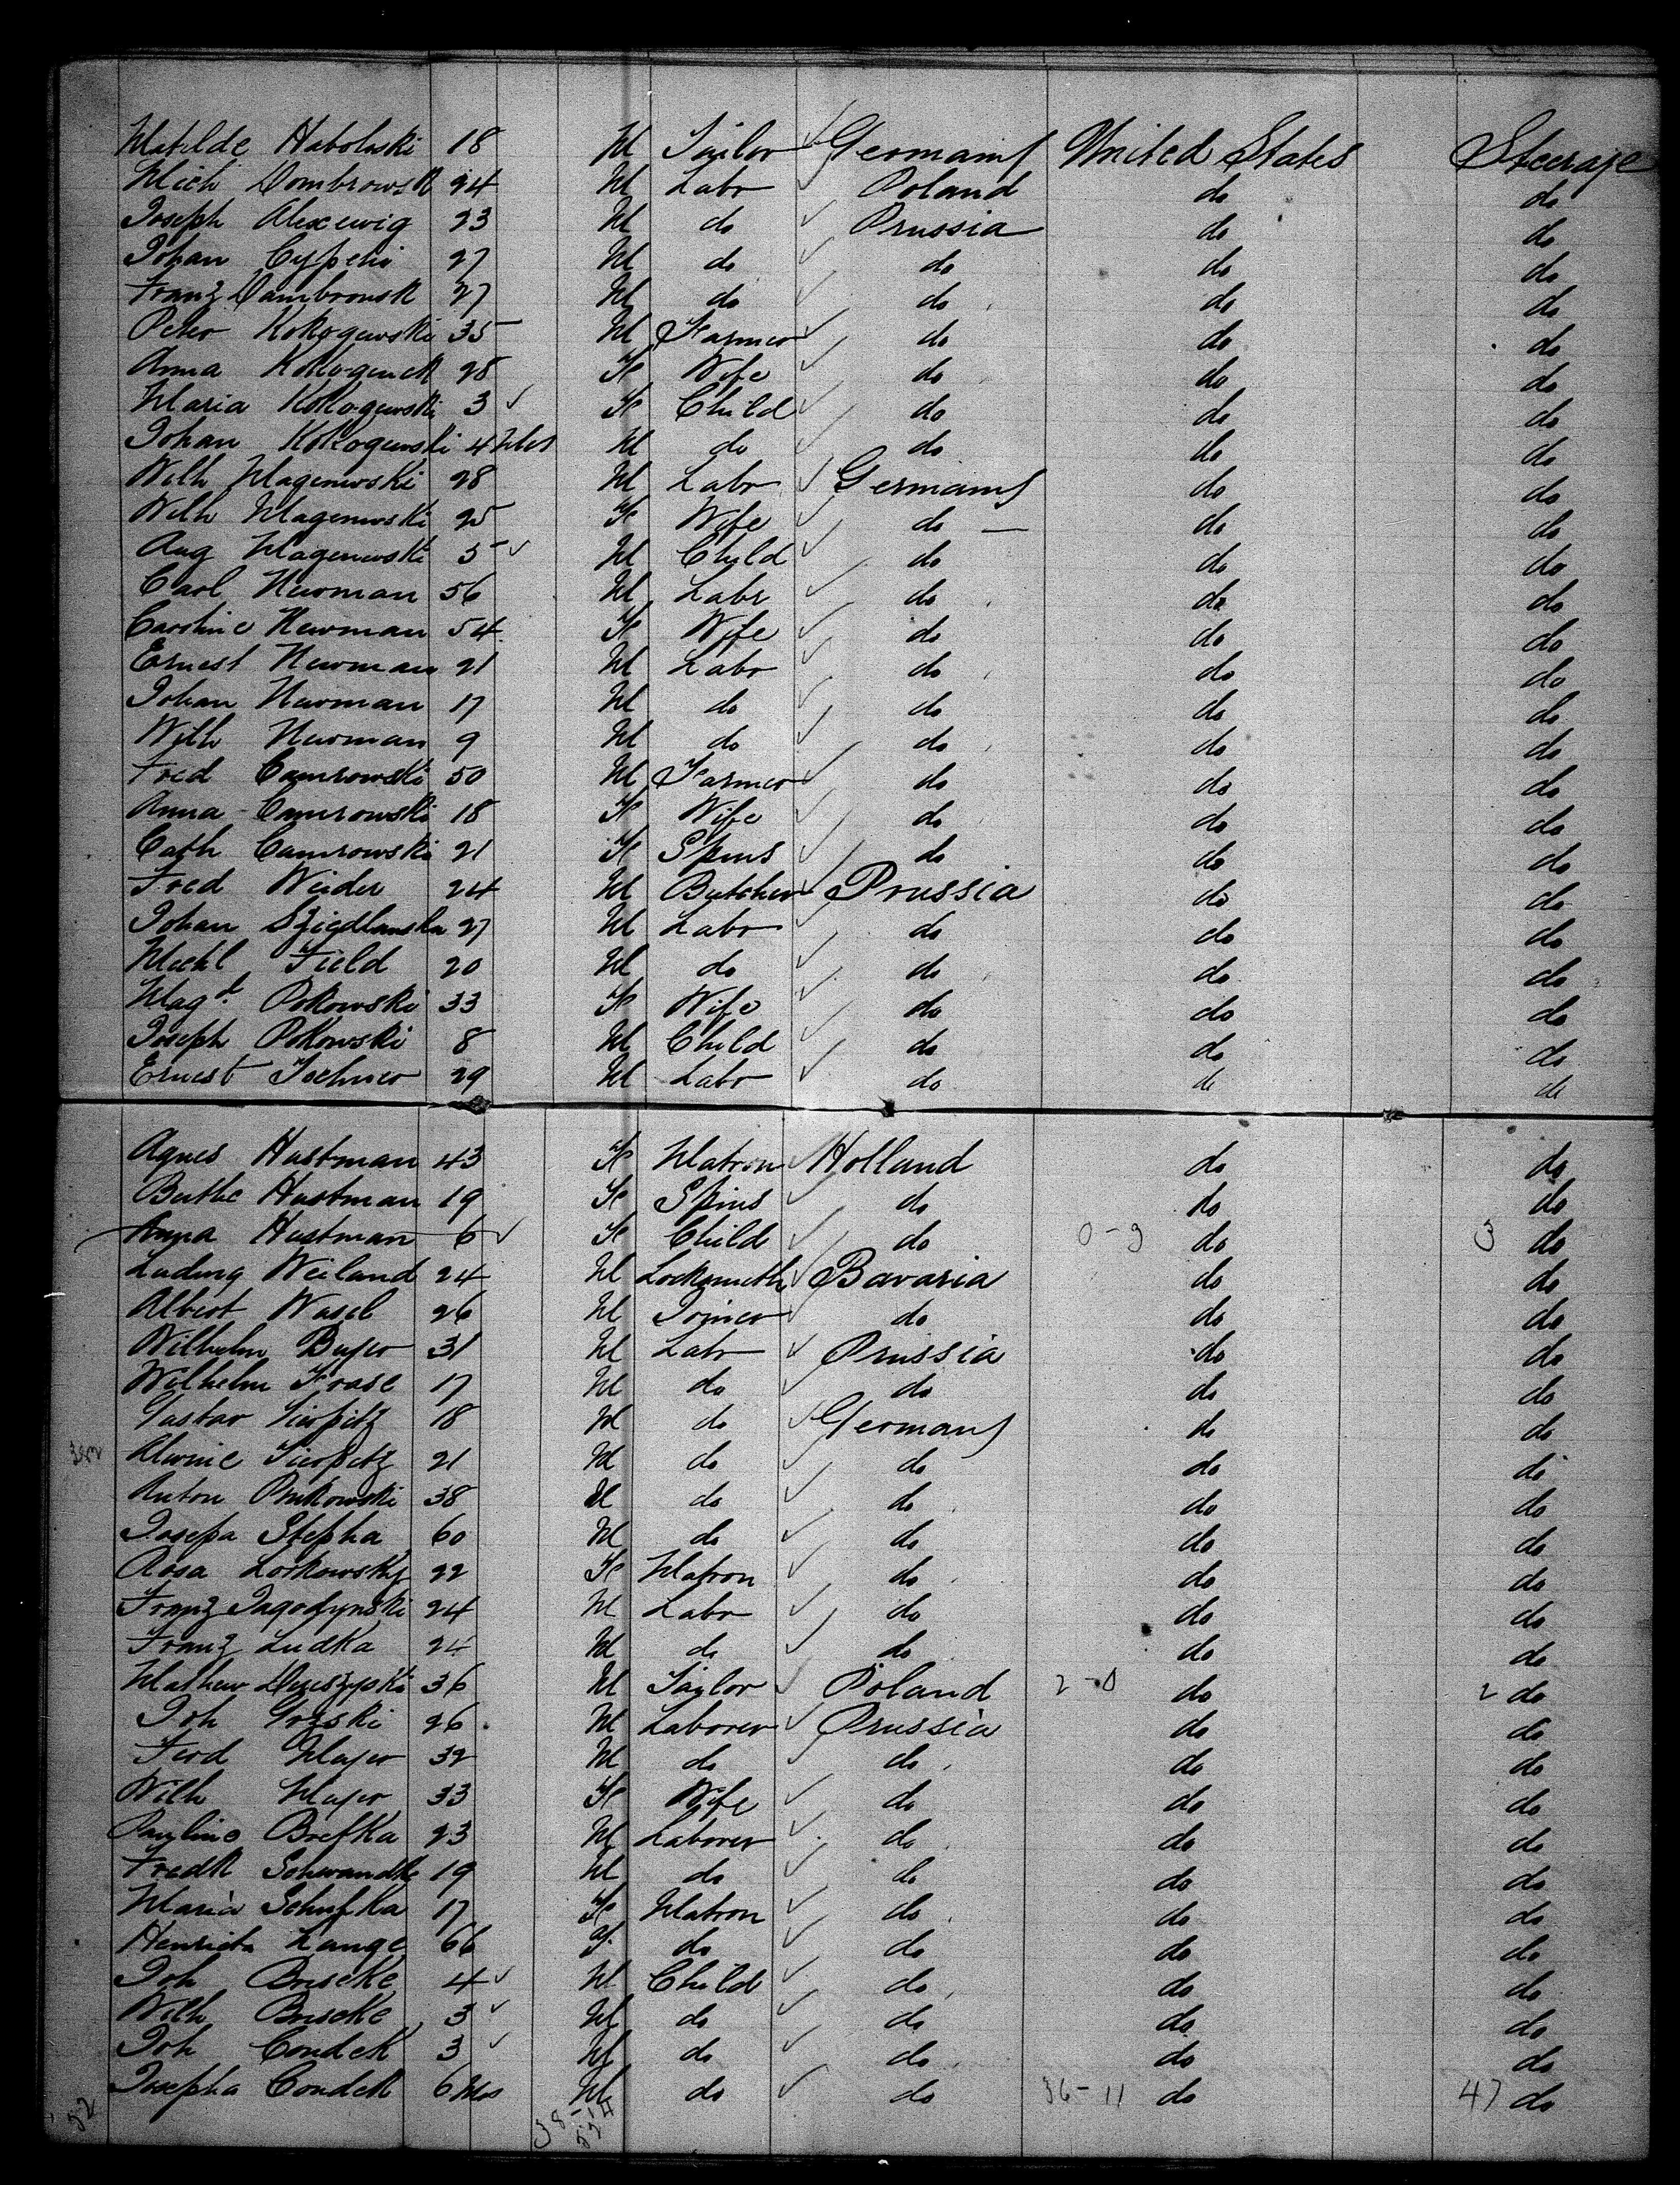 Matilde Haboluski 18 M Tailor Germany United States Steerage
Mich Dombrowsk 24 M Labr Poland do do
Joseph Alexewig 23 M do Prussia do do
Johan Cypehi 27 M do do do do
Franz Dambrowsk 27 M do do do do
Peter Kokogewski 35 M Farmer do do do
Anna Kokogewsk 28 F Wife do do do
Maria Kokogewski 3 F Child do do do
Johan Kokogewski 4 Mos M do do do do
Wilh Magenewski 28 M Labr Germany do do
Wilh Magenewski 25 F Wife do do do
Aug Magenewski 5 M Child do do do
Carl Newman 56 M Labr do do do
Caroline Newman 54 F Wife do do do
Ernest Newman 21 M Labr do do do
Johan Newman 17 M do do do do
Wilh Newman 9 M do do do do
Fred Camrowski 50 M Farmer do do do
Anna Camrowski 18 F Wife do do do
Cath Camrowski 21 F Spins do do do
Fred Weider 24 M Butcher Prussia do do
Johan 27 M Labr do do do
Michl Field 20 M do do do do
Magd Pokowski 33 F Wife do do do
Joseph Pokowski 8 M Child do do do
Ernest 29 M Labr do do do
Agnes Hustman 43 F Matron Holland do do
Berthe Hustman 19 F Spins do do do
Anna Hustman 6 F Child do 0-3 do 3 do
Ludwig Weiland 24 M Locksmith Bavaria do do
Albert Wasel 26 M Joiner do do do
Wilhelm 31 M Labr Prussia do do
Wilhelm Krase 17 M do do do do
Gustav 18 M do Germany do do
21 M do do do do
Anton Pinkowski 38 M do do do do
Josepa Stepha 60 M do do do do
Rosa Lorkowsky 22 F Matron do do do
Franz Jagodynski 24 M Labr do do do
Franz Ludka 24 M do do do do
Mathew 36 M Tailor Poland 2-0 do 2 do
Joh Gorski 26 M Laborer Prussia do do
Ferd Mayer 32 M do do do do
Wilh Mayer 33 F Wife do do do
Pauline Brefka 23 M Laborer do do do
Fredk Schwandke 19 M do do do do
Maria Schufka 17 F Matron do do do
Henrieta Lange 66 F do do do do
Joh Briseke 4 M Child do do do
Wilh Briseke 3 M do do do do
Joh Condek 3 M do do do do
Josepha Condek 6 Mos M do do 36-11 do 47 do
52 38-14
52